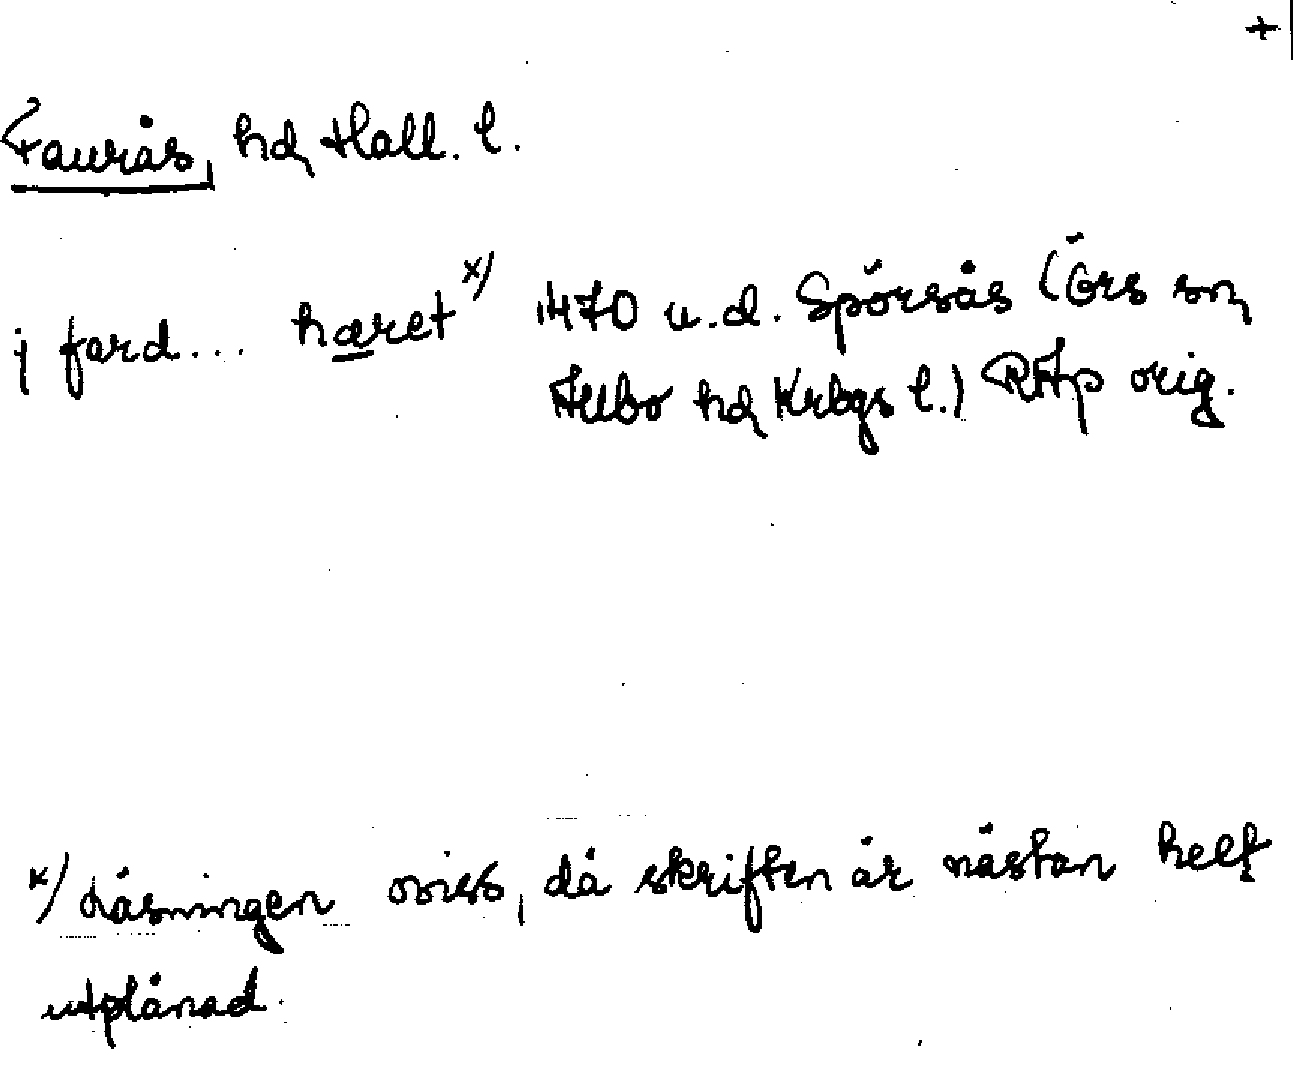 +
Faurås, hd Hall. l.
j fard... hæret x) 1470 u.d. Spörsås (Örs sn
Allbo hd Krbgs l.) RAp orig.
x) Läsningen oviss, då skriften är nästan helt
utplånad.